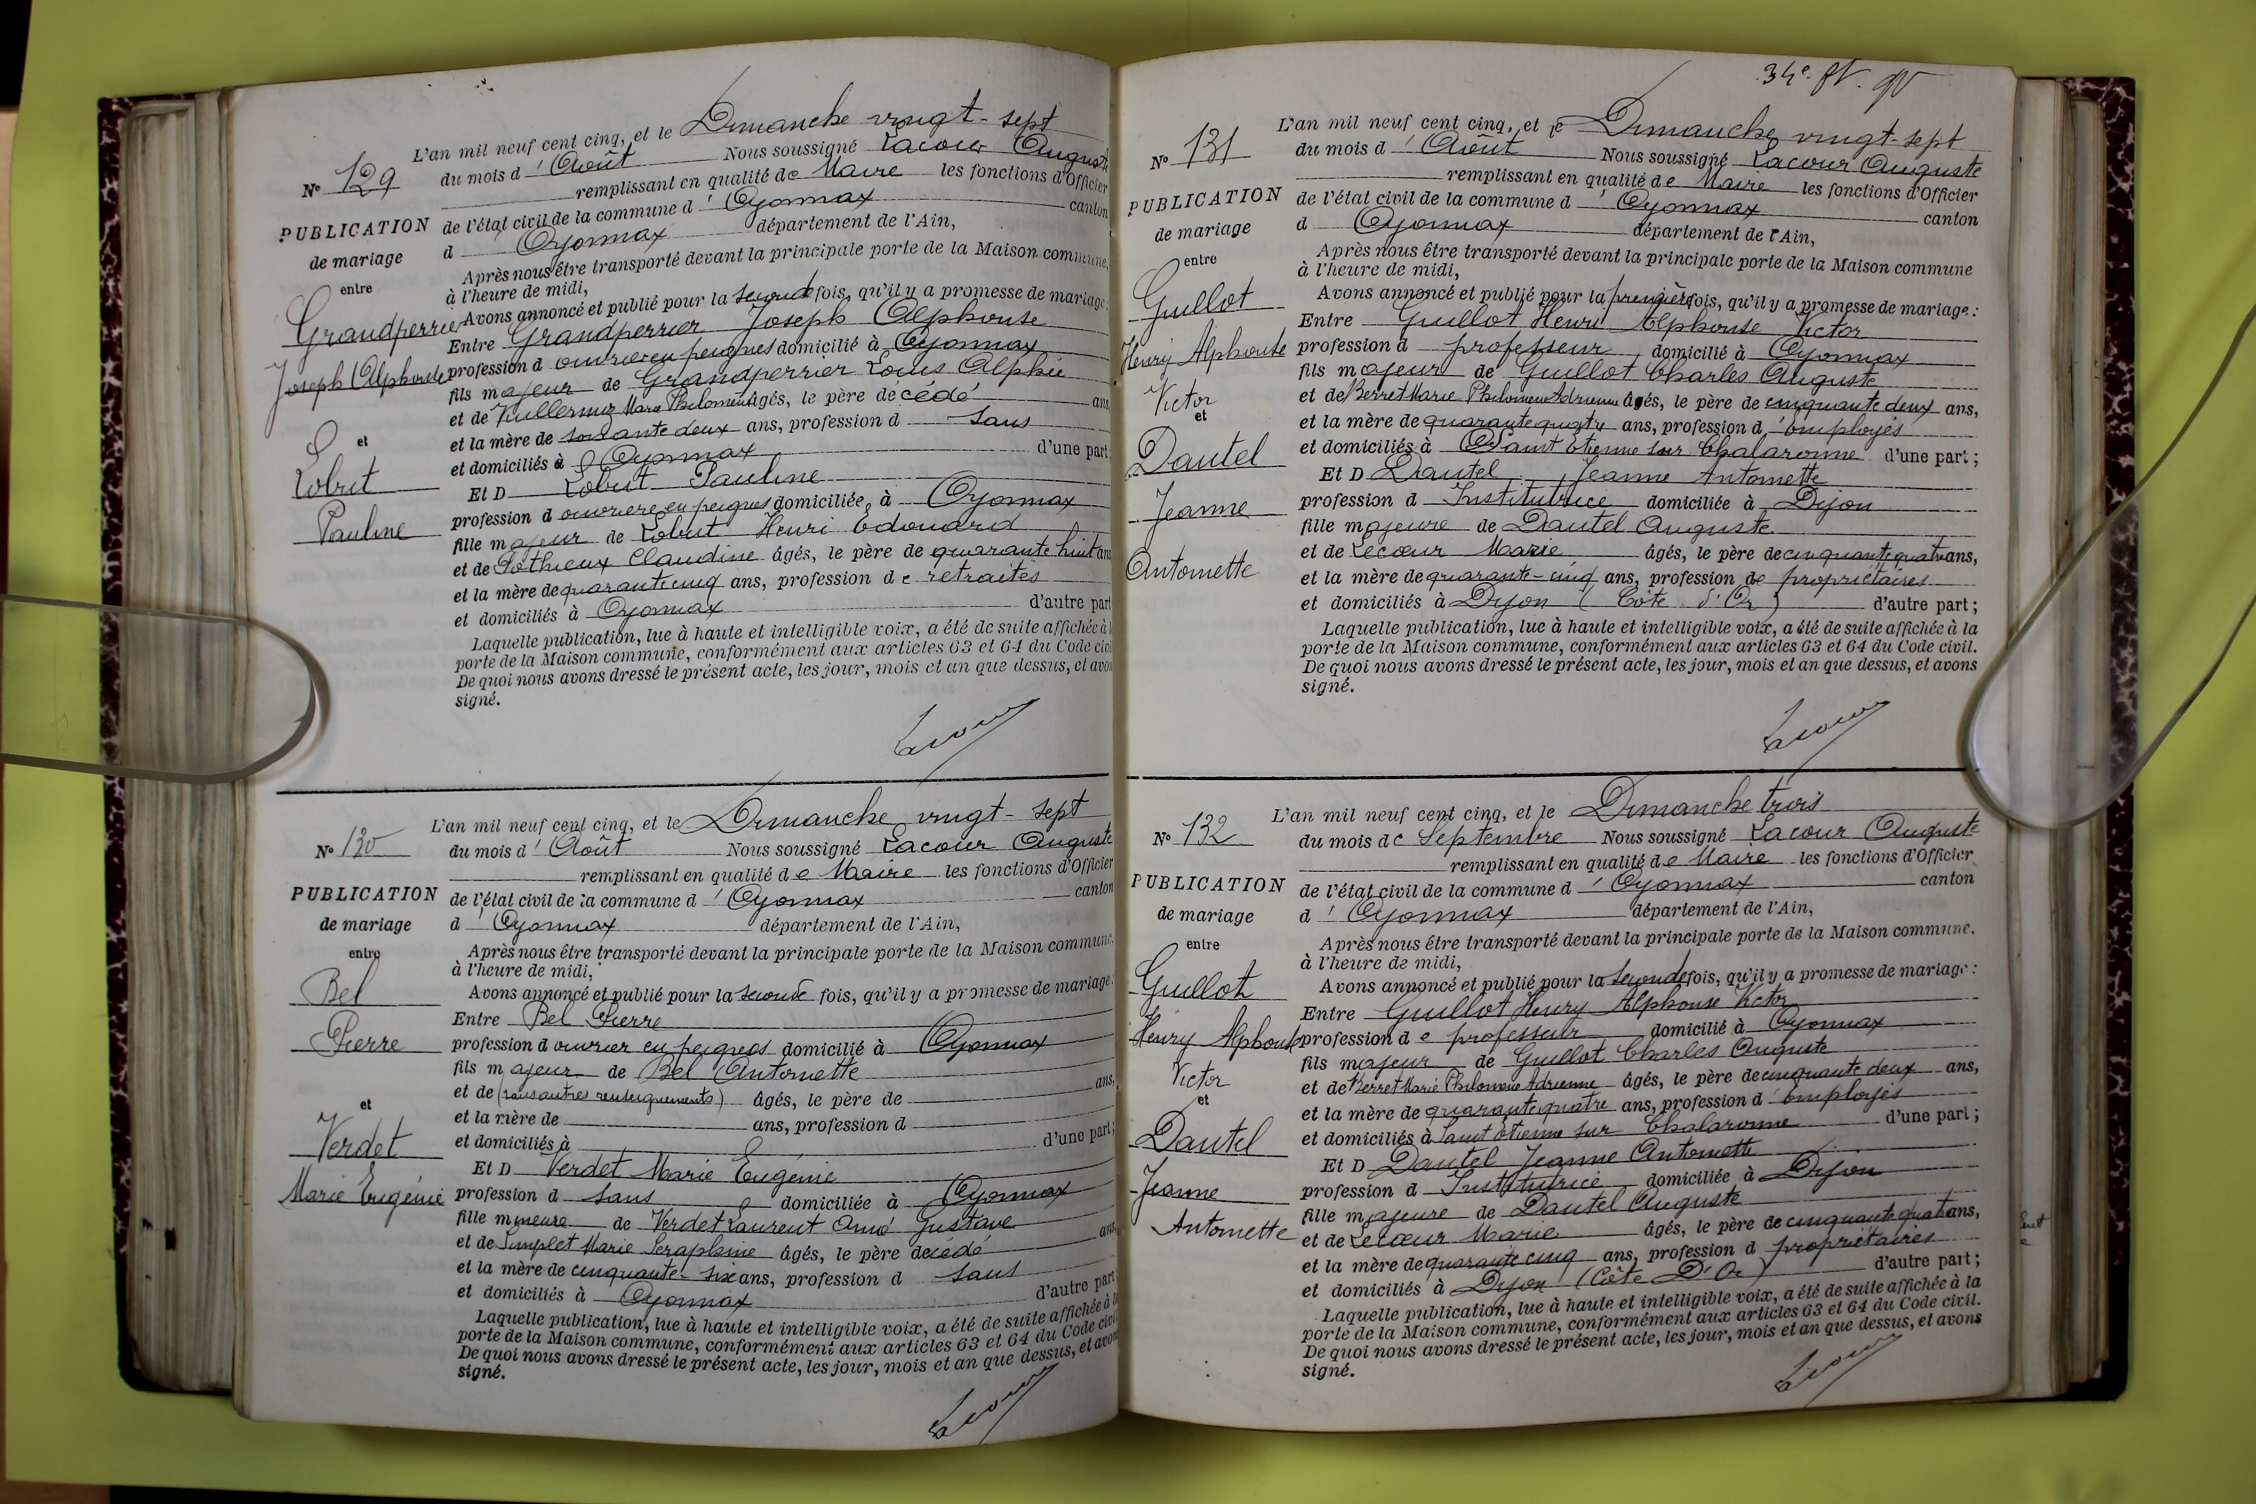 L'an mil neuf cent cinq, et le Dimanche vingt-sept
du mois d'Août Nous soussigné Lacour Auguste
Nº 129
remplissant en qualité de Maire les fonctions d'Officier
PUBLICATION
de l'état civil de la commune d'Oyonnax canton
de mariage
d Oyonnax département de l'Ain,
entre
Après nous être transporté devant la principale porte de la Maison commune,
à l'heure de midi,
Grandperrier
Avons annoncé et publié pour la seconde fois, qu'il y a promesse de mariage:
Entre Grandperrier Joseph Alphonse
Joseph Alphonse
profession d ouvrier en peignes domicilié à Oyonnax
fils majeur de Grandperrier Louis Alphée
et de Vuillermoz Marie Philomène âgés, le père décédé ans,
et
et la mère de soixante deux ans, profession d sans
et domiciliés à Oyonnax d'une part
Lobut
Et D Lobut Pauline
Pauline
profession d ouvrière en peignes domiciliée à Oyonnax
fille majeur de Lobut Henri Edouard
et de Pothieux Claudine âgés, le père de quarante huit ans
et la mère de quarante cinq ans, profession de retraités
et domiciliés à Oyonnax d'autre part
Laquelle publication, lue à haute et intelligible voix, a été de suite affichée à la
porte de la Maison commune, conformément aux articles 63 et 64 du Code civil
De quoi nous avons dressé le présent acte, les jour, mois et an que dessus, et avons
signé.
Lacour
L'an mil neuf cent cinq, et le Dimanche vingt-sept
Nº 130
du mois d'Août Nous soussigné Lacour Auguste
remplissant en qualité de Maire les fonctions d'Officier
PUBLICATION
de l'état civil de la commune d'Oyonnax canton
de mariage
d'Oyonnax département de l'Ain,
entre
Après nous être transporté devant la principale porte de la Maison commune.
à l'heure de midi,
Bel
Avons annoncé et publié pour la seconde fois, qu'il y a promesse de mariage:
Entre Bel Pierre
Pierre
profession d ouvrier en peignes domicilié à Oyonnax
fils majeur de Bel Antoinette
et de (sans autres renseignements) âgés, le père de ans,
et
et la mère de ans, profession d
Verdet
et domiciliés à d'une part;
Et D Verdet Marie Eugénie
Marie Eugénie
profession d sans domiciliée à Oyonnax
fille mineure de Verdet Laurent Aimé Gustave
et de Simplet Marie Séraphine âgés, le père décédé ans
et la mère de cinquante-six ans, profession d sans
et domiciliés à Oyonnax d'autre part
Laquelle publication, lue à haute et intelligible voix, a été de suite affichée à la
porte de la Maison commune, conformément aux articles 63 et 64 du Code civil
De quoi nous avons dressé le présent acte, les jour, mois et an que dessus, et avons
signé.
Lacour
34e
L'an mil neuf cent cinq, et le Dimanche vingt-sept
Nº 131
du mois d'Août Nous soussigné Lacour Auguste
remplissant en qualité de Maire les fonctions d'Officier
PUBLICATION
de l'état civil de la commune d'Oyonnax canton
de mariage
d Oyonnax département de l'Ain,
entre
Après nous être transporté devant la principale porte de la Maison commune
à l'heure de midi,
Guillot
Avons annoncé et publié pour la première fois, qu'il y a promesse de mariage:
Entre Guillot Henri Alphonse Victor
Henry Alphonse
profession d professeur domicilié à Oyonnax
fils majeur de Guillot Charles Auguste
Victor
et de Berret Marie Philomène Adrienne âgés, le père de cinquante deux ans,
et
et la mère de quarante quatre ans, profession d'employés
Dautel
et domiciliés à Saint Etienne sur Chalaronne d'une part;
Et D Dautel Jeanne Antoinette
Jeanne
profession d Institutrice domiciliée à Dijon
fille majeure de Dautel Auguste
Antoinette
et de Lecœur Marie âgés, le père de cinquante quatre ans,
et la mère de quarante-cinq ans, profession de propriétaires
et domiciliés à Dijon (Côte d'Or) d'autre part;
Laquelle publication, lue à haute et intelligible voix, a été de suite affichée à la
porte de la Maison commune, conformément aux articles 63 et 64 du Code civil.
De quoi nous avons dressé le présent acte, les jour, mois et an que dessus, et avons
signé.
Lacour
L'an mil neuf cent cinq, et le Dimanche trois
Nº 132
du mois de Septembre Nous soussigné Lacour Auguste
remplissant en qualité de Maire les fonctions d'Officier
PUBLICATION
de l'état civil de la commune d'Oyonnax canton
de mariage
d'Oyonnax département de l'Ain,
entre
Après nous être transporté devant la principale porte de la Maison commune.
à l'heure de midi,
Guillot
Avons annoncé et publié pour la seconde fois, qu'il y a promesse de mariage:
Entre Guillot Henry Alphonse Victor
Henry Alphonse
profession de professeur domicilié à Oyonnax
fils majeur de Guillot Charles Auguste
Victor
et de Berret Marie Philomène Adrienne âgés, le père de cinquante deux ans,
et
et la mère de quarante quatre ans, profession d'employés
Dautel
et domiciliés à Saint Etienne sur Chalaronne d'une part;
Et D Dautel Jeanne Antoinette
Jeanne
profession d Institutrice domiciliée à Dijon
fille majeure de Dautel Auguste
Antoinette
et de Lecœur Marie âgés, le père de cinquante quatre ans,
et la mère de quarante cinq ans, profession d propriétaires
et domiciliés à Dijon (Côte D'Or) d'autre part;
Laquelle publication, lue à haute et intelligible voix, a été de suite affichée à la
porte de la Maison commune, conformément aux articles 63 et 64 du Code civil.
De quoi nous avons dressé le présent acte, les jour, mois et an que dessus, et avons
signé.
Lacour